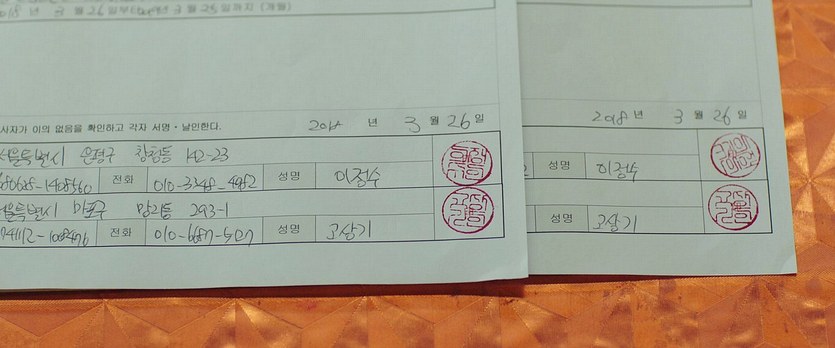 2018 년 3 월 26 일부터 2019 년 3 월 25 일까지 (개월)
사자가 이의 없음을 확인하고 각자 서명·날인한다.
2018 년 3 월 26 일
서울특별시 은평구 창천동 142-23
전화 010-3348-4982 성명 이정수
서울특별시 마포구 망리동 293-1
전화 성명 고상기
2018 년 3 월 26 일
성명 이정수
성명 고상기